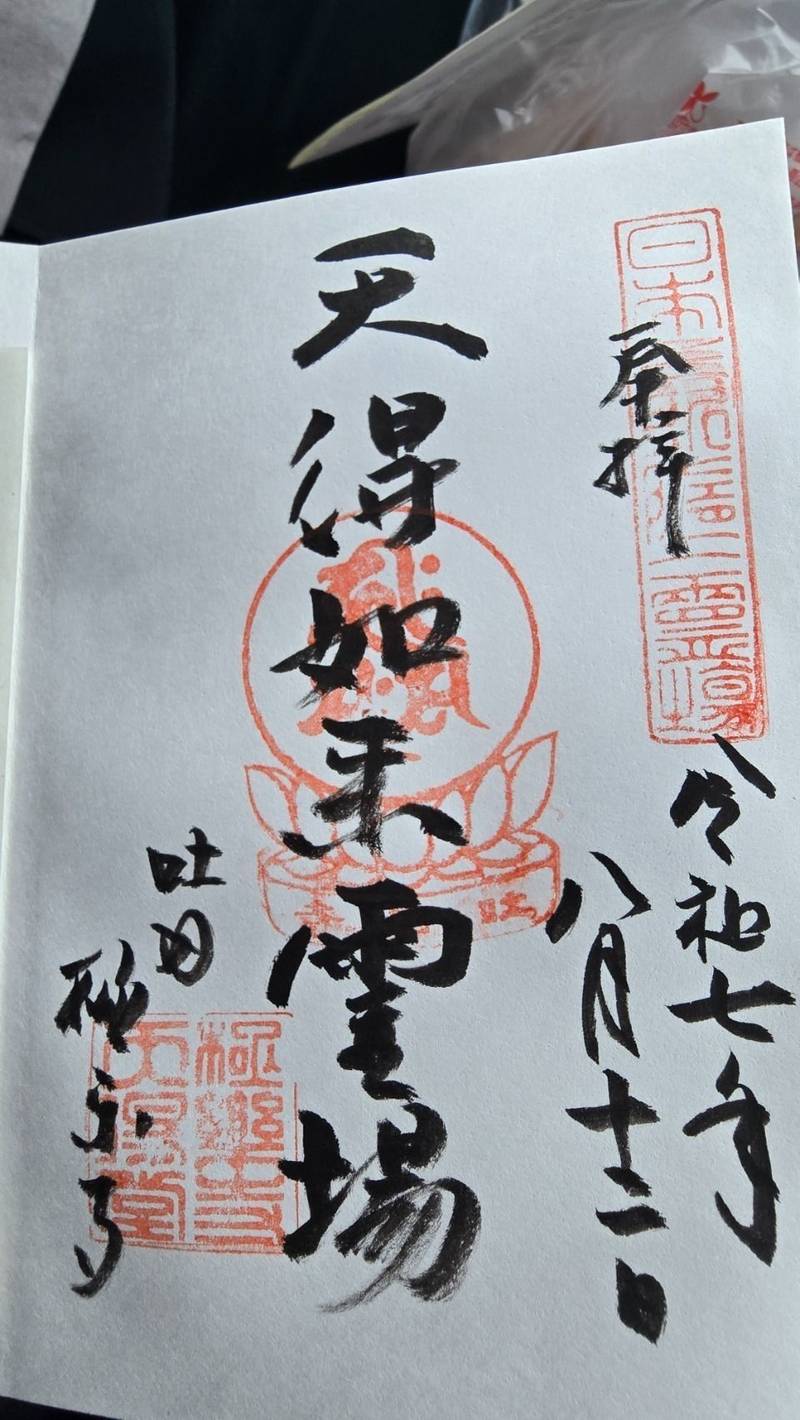 奉拝
日本
霊場
令和七年
八月十二日
天得如来霊場
吐田
極楽寺
極樂寺
天得堂